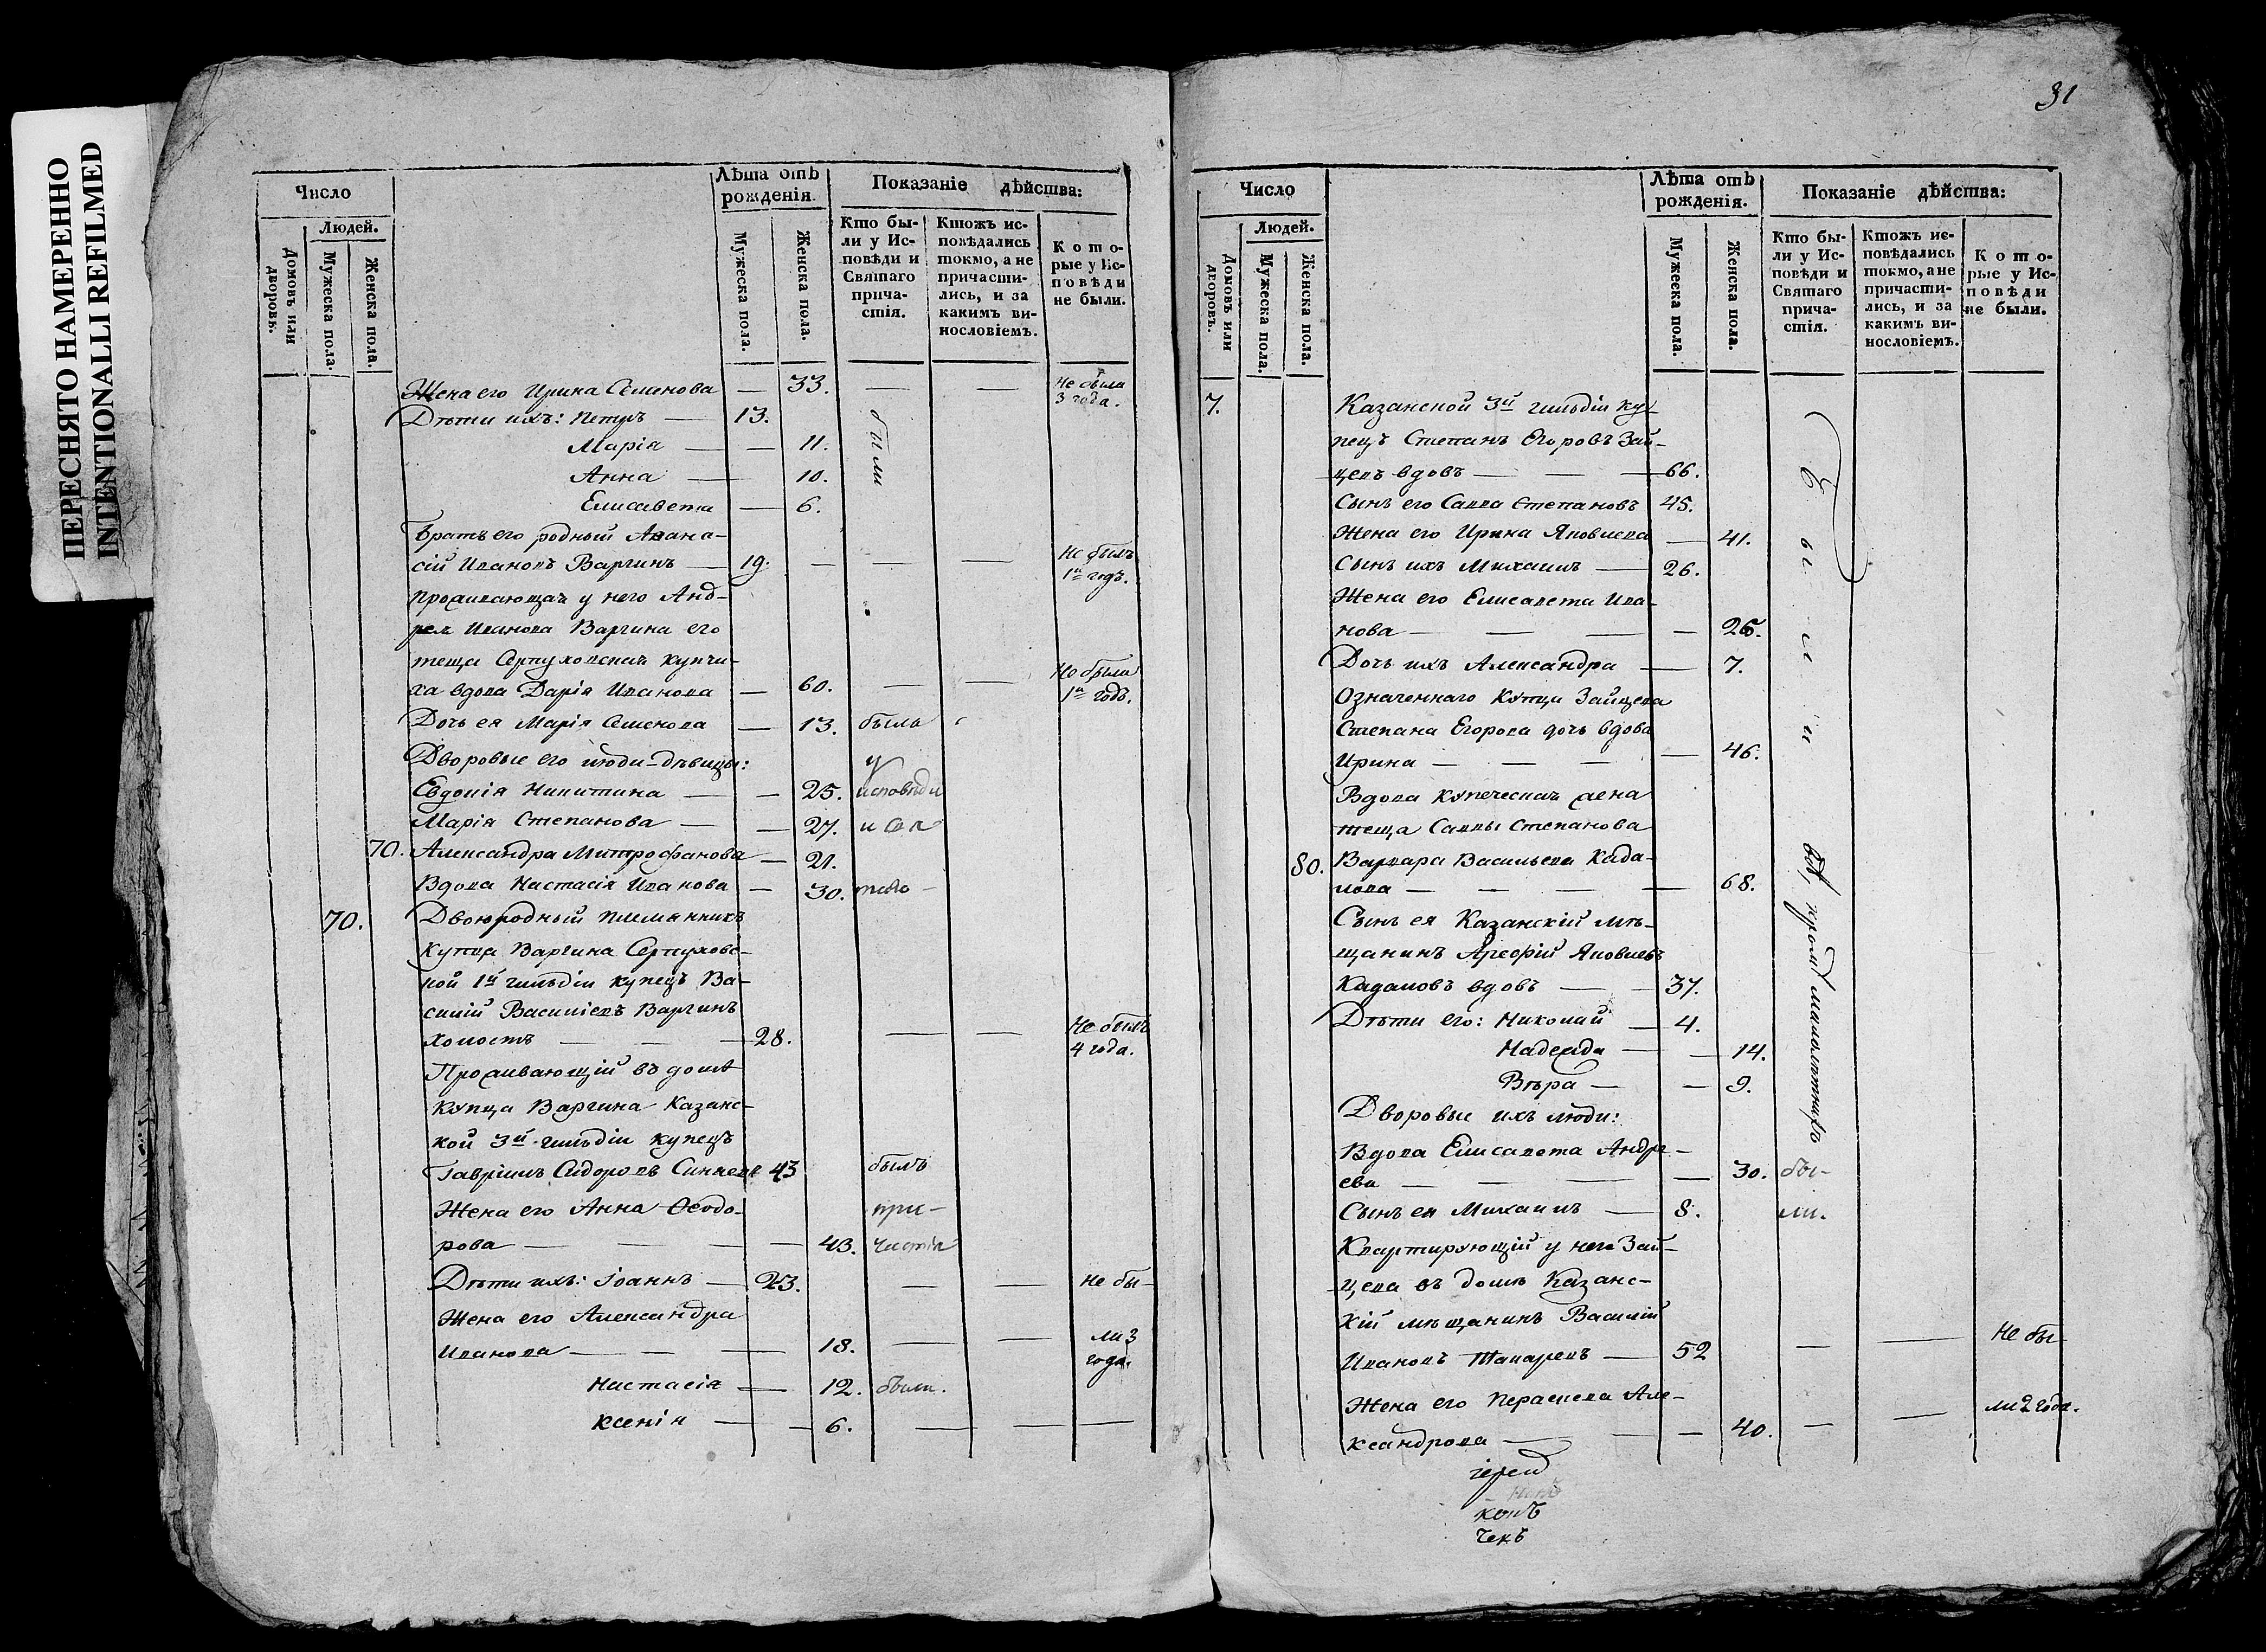 ПЕРЕСНЯТО НАМЕРЕННО
INTENTIONALLI REFILMED
31
Число
Людей.
Домовъ или дворовъ.
Мужеска пола.
Женска пола.
Лѣта отъ рожденія.
Мужеска пола.
Женска пола.
Показаніе дѣйства:
Кто бы-
ли у Ис-
повѣди и
Святаго
прича-
стія.
Ктожъ ис-
повѣдались
токмо, а не
причасти-
лись, и за
какимъ ви-
нословіемъ.
К о т о-
рые у Ис-
п о в ѣ д и
не были.
Жена его Ирина Семенова — 33. — — Не была 3 года.
Дѣти ихъ: Петръ — 13. были
Марія — — 11.
Анна — 10.
Елисавета — 6.
Братъ его родный Афана-
сій Ивановъ Варгинъ — 19. — — — Не былъ 1нъ годъ.
Проживающая у него Анд-
рея Иванова Варгина его
теща Серпуховская купчи-
ха вдова Дарія Иванова — 60. — — Не была 1нъ годъ.
Дочь ея Марія Семенова — 13. была
Дворовые его люди-дѣвицы: у
Евдокія Никитина — — 25. исповѣди
Марія Степанова — — 27. и
70. Александра Митрофанова — 21.
Вдова Настасія Иванова — 30.
70. Двоюродный племянникъ
купца Варгина Серпуховс-
кой 1й гильдіи купецъ Ва-
силій Василіевъ Варгинъ
холостъ — — — 28. — — Не былъ 4 года.
Проживающій въ домѣ
купца Варгина Казанс-
кой 3й гильдіи купецъ
Гавріилъ Сидоровъ 43 былъ
Жена его Анна Ѳеодо- при-
рова — — — — 43. частія
Дѣти ихъ: Іоаннъ — 23. — — Не бы-
Жена его Александра
Иванова — — — 18. — — ли 3 года.
Настасія — 12. были.
Ксенія — — 6. — — —
Число
Людей.
Домовъ или дворовъ.
Мужеска пола.
Женска пола.
Лѣта отъ рожденія.
Мужеска пола.
Женска пола.
Показаніе дѣйства:
Кто бы-
ли у Ис-
повѣди и
Святаго
прича-
стія.
Ктожъ ис-
повѣдались
токмо, а не
причасти-
лись, и за
какимъ ви-
нословіемъ.
К о т о-
рые у Ис-
п о в ѣ д и
не были.
7. Казанской 3й гильдіи ку-
пецъ Степанъ Егоровъ Зай-
цевъ вдовъ — — — 66.
Сынъ его Савва Степановъ 45.
Жена его Ирина Яковлева — 41.
Сынъ ихъ Михаилъ — 26.
Жена его Елисавета Ива-
нова — — — — 26.
Дочь ихъ Александра — 7.
Означеннаго купца Зайцева
Степана Егорова дочь вдова
Ирина — — — — 46.
Вдова купеческая жена
теща Саввы Степанова
80. Варвара Васильева Када-
лова — — — — 68.
Сынъ ея Казанскій мѣ-
щанинъ Яковлевъ
Кадаловъ вдовъ — — 37.
Дѣти его: Николай — 4.
Надежда — — 14.
Вѣра — — 9.
Были
кромѣ малолѣтнихъ
Дворовые ихъ люди:
Вдова Елисавета Андре-
ева — — — — 30. бы-
Сынъ ея Михаилъ — 8. ли.
Квартирующій у него Зай-
цева въ домѣ Казанс-
кій мѣщанинъ Василій
Ивановъ — 52 — — Не бы-
Жена его Параскева Але- ли 2 года.
ксандрова — — — 40. — —
іерей